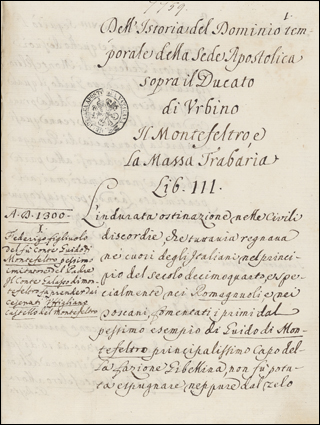 1
7759
Dell'Istoria del Dominio tem-
porale della Sede Apostolica
sopra il Ducato
di Vrbino
Il Montefeltro e
La Massa Trabària
Lib. III.
A. D. 1300.
I
Federigo figliuolo
del fù Conte Guido di
Montefeltro, pessimo
imitatore del Padre
il Conte Galasso di mon-
tefeltro
Castello nel Montefeltro
L'indurata ostinazione nelle Civili
discordie, che tuttavia regnava
ne' cuori degl'Italiani, nel prin-
cipio del Secolo decimoquarto, e spe-
cialmente nei Romagnuoli, e nei
Toscani, fomentati i primi dal
pessimo esempio di Guido di Mon-
tefeltro principalissimo Capo del-
la Fazione Gibellina, non fù potu-
ta espugnare, neppure dal zelo